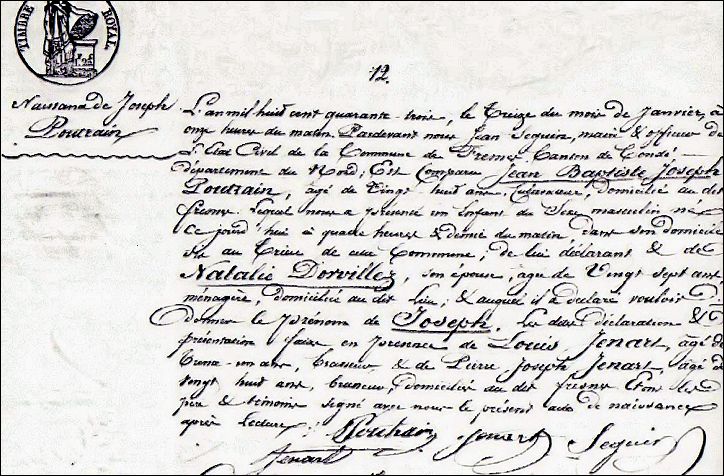 TIMBRE ROYAL
12.
Naissance de Joseph
Poutrain
L'an mil huit cent quarante-trois, le Treize du mois de Janvier, à
onze heures du matin. Pardevant nous Jean Seguin, maire & officier de
L'Etat Civil de la Commune de Fresnes Canton de Condé
département du Nord; Est Comparu Jean Baptiste Joseph
Poutrain, agé de Vingt huit ans, domicilié au dit
fresnes Lequel nous a présenté un Enfant du Sexe masculin né
Ce jourd'hui à quatre heures & demie du matin, dans son domicile
sis au de cette Commune; de lui déclarant & de
Natalie Dorvillez, son épouse, agée de Vingt sept ans
ménagère, domiciliée au dit lieu; & auquel il a déclaré vouloir
donner le prénom de Joseph. Les dites déclaration &
présentation faites en présence de Louis Jenart, agé de
trente-un ans, brasseur, & de Pierre Joseph Jenart, agé de
vingt huit ans, domiciliés au dit fresnes Et ont les
père & témoins signé avec nous le présent acte de naissance
après Lecture.
Poutrain Jenart Seguin
Jenart